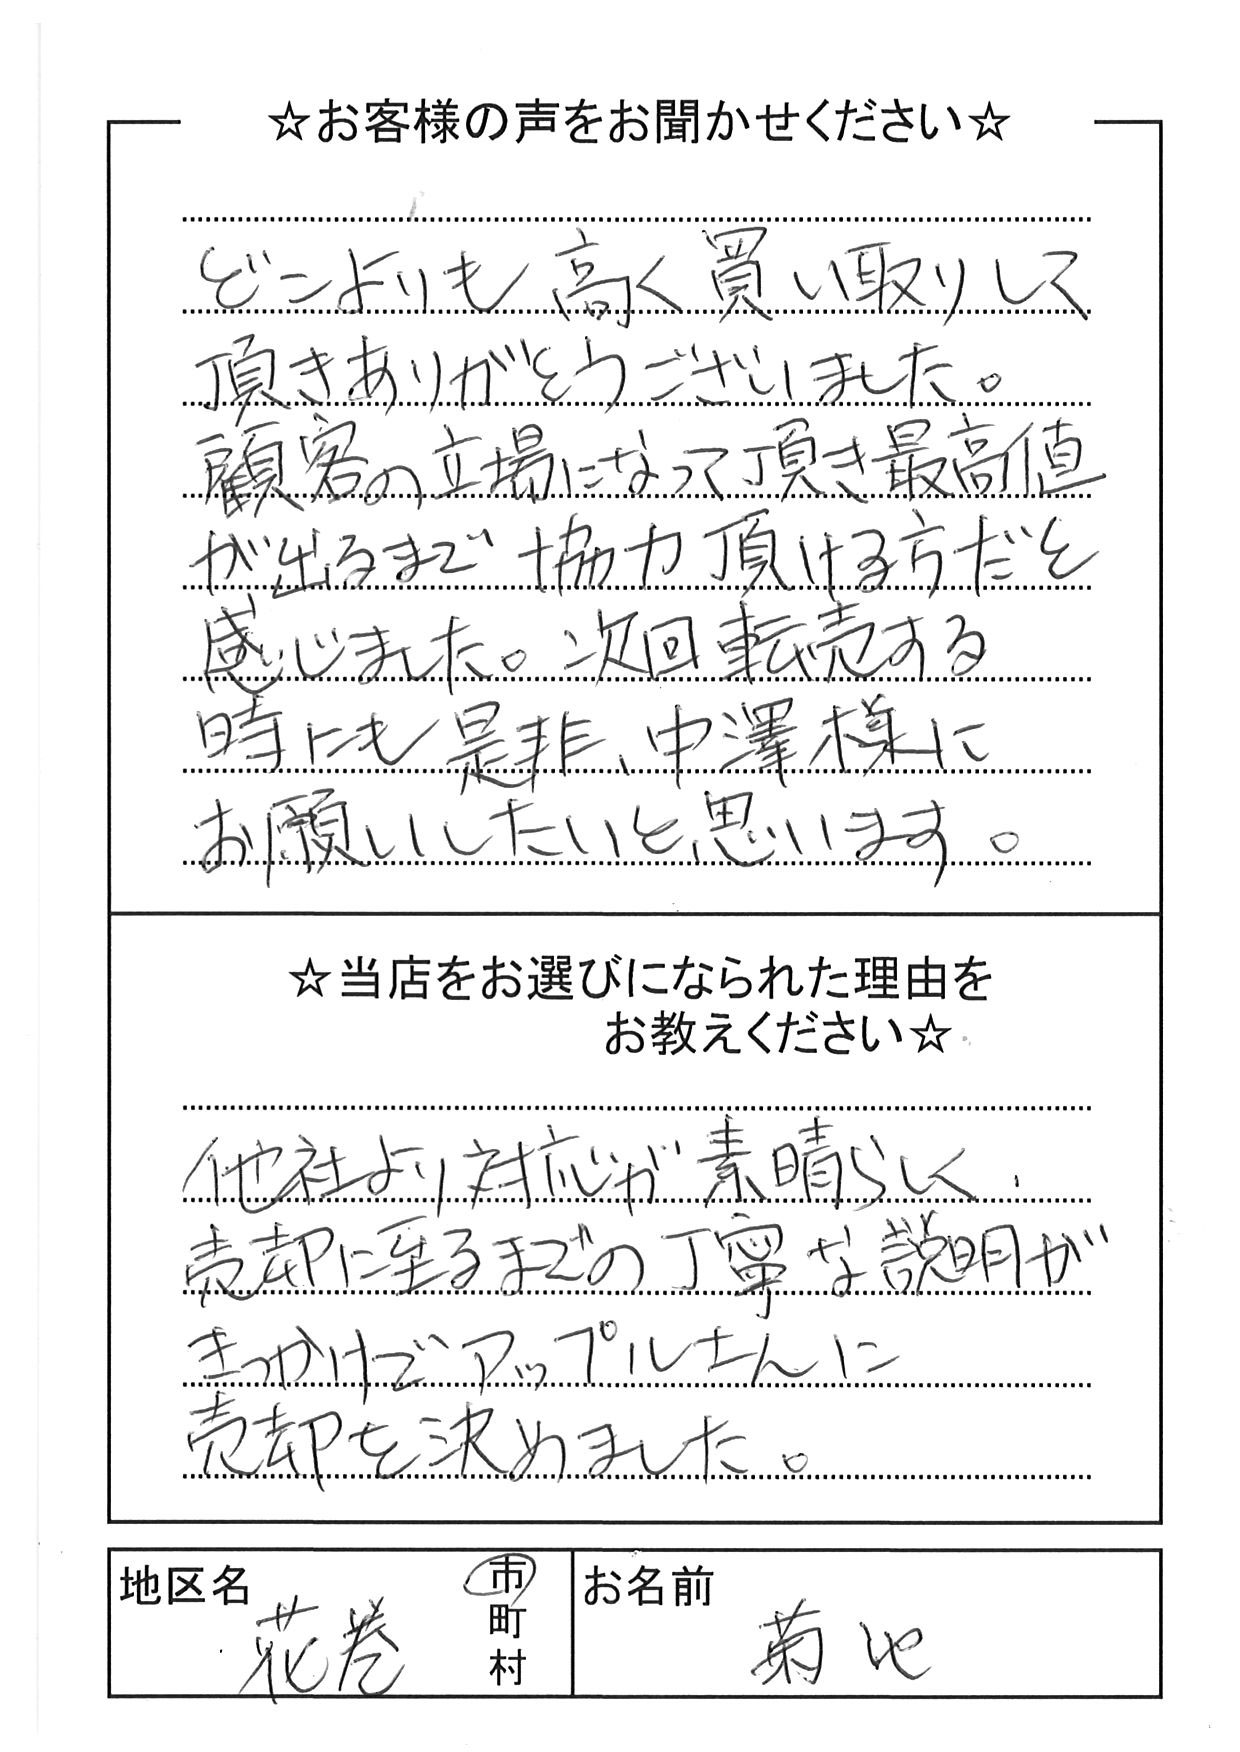 ☆お客様の声をお聞かせください☆
どこよりも高く買い取りして
頂きありがとうございました。
顧客の立場になって頂き最高値
が出るまで協力頂ける方だと
感じました。次回転売する
時にも是非、中澤様に
お願いしたいと思います。
☆当店をお選びになられた理由を
お教えください☆
他社より対応が素晴らしく、
売却に至るまでの丁寧な説明が
きっかけでアップルさんに
売却を決めました。
地区名
花巻
市
町
村
お名前
菊地